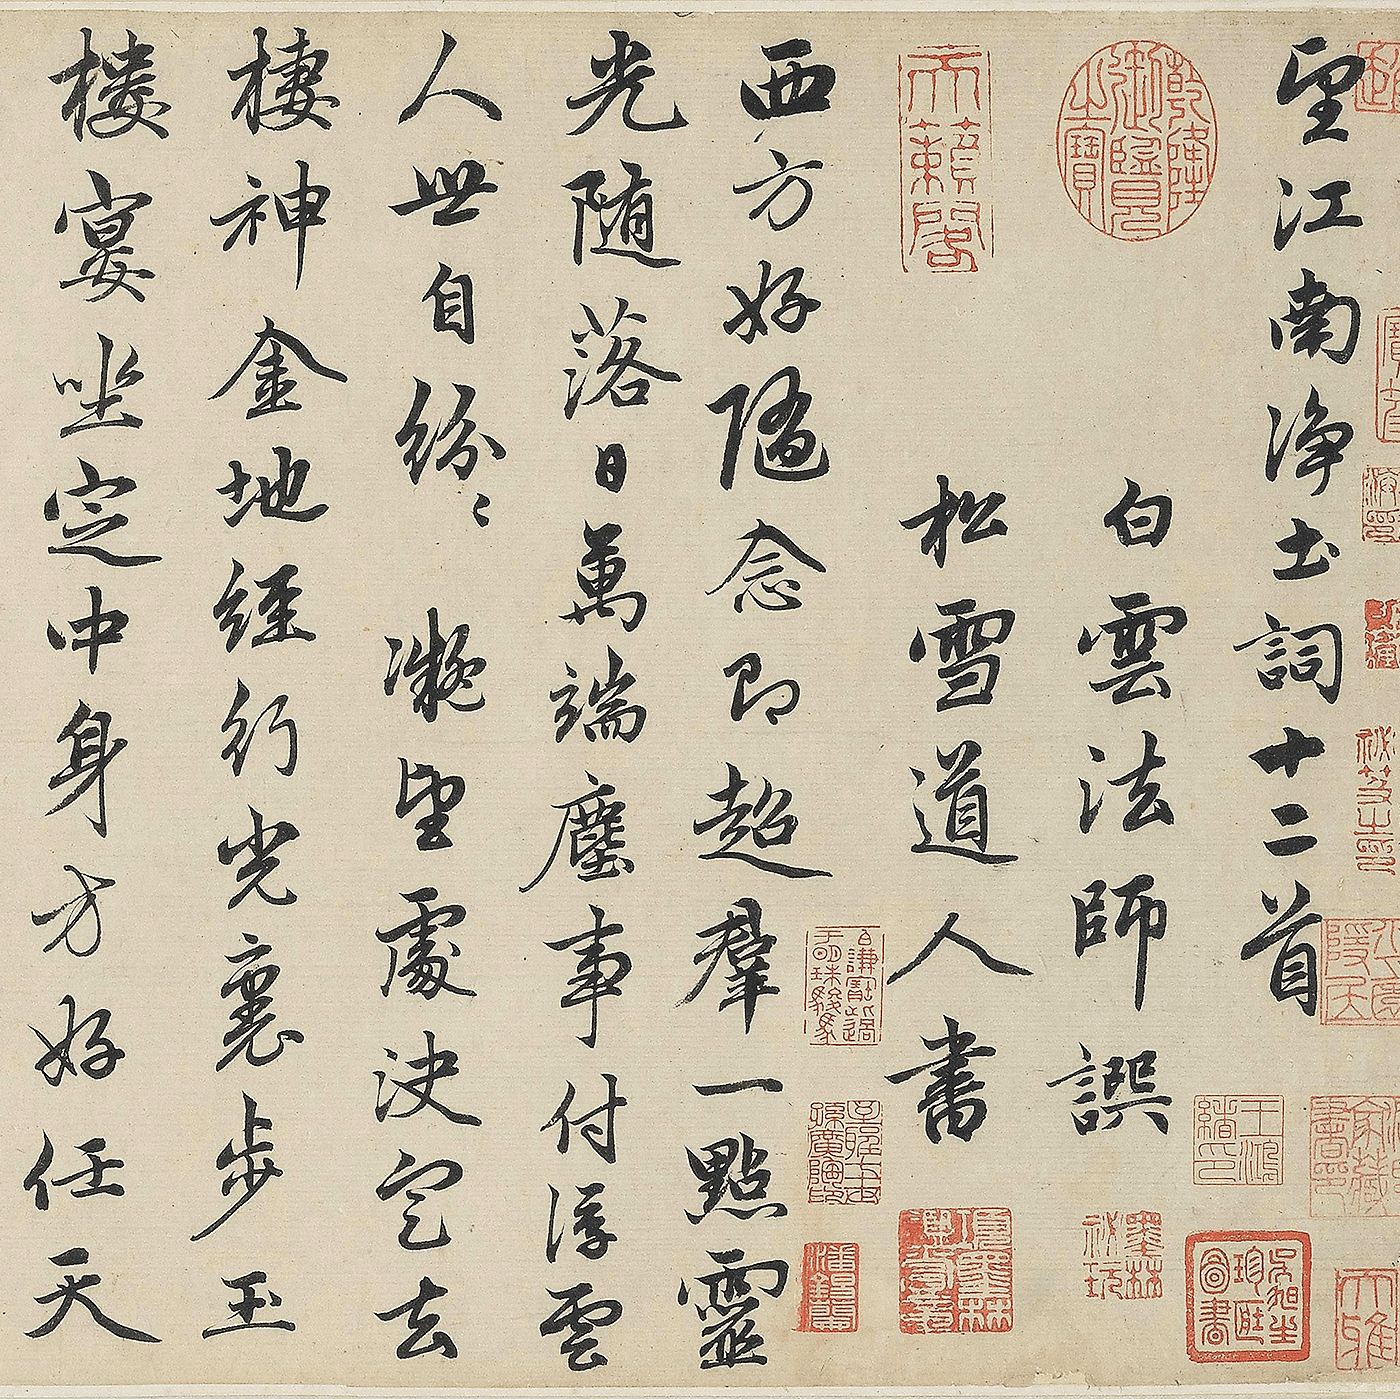 望江南净土詞十二首
乾隆御覽之寶
白雲法師譔
墨林秘玩
天籟閣
松雪道人書
西方好隨念即超羣一點靈
光随落日萬端塵事付浮雲
人世自紛〻 凝望處決定去
棲神金地經行光裏步玉
樓宴坐定中身方好任天